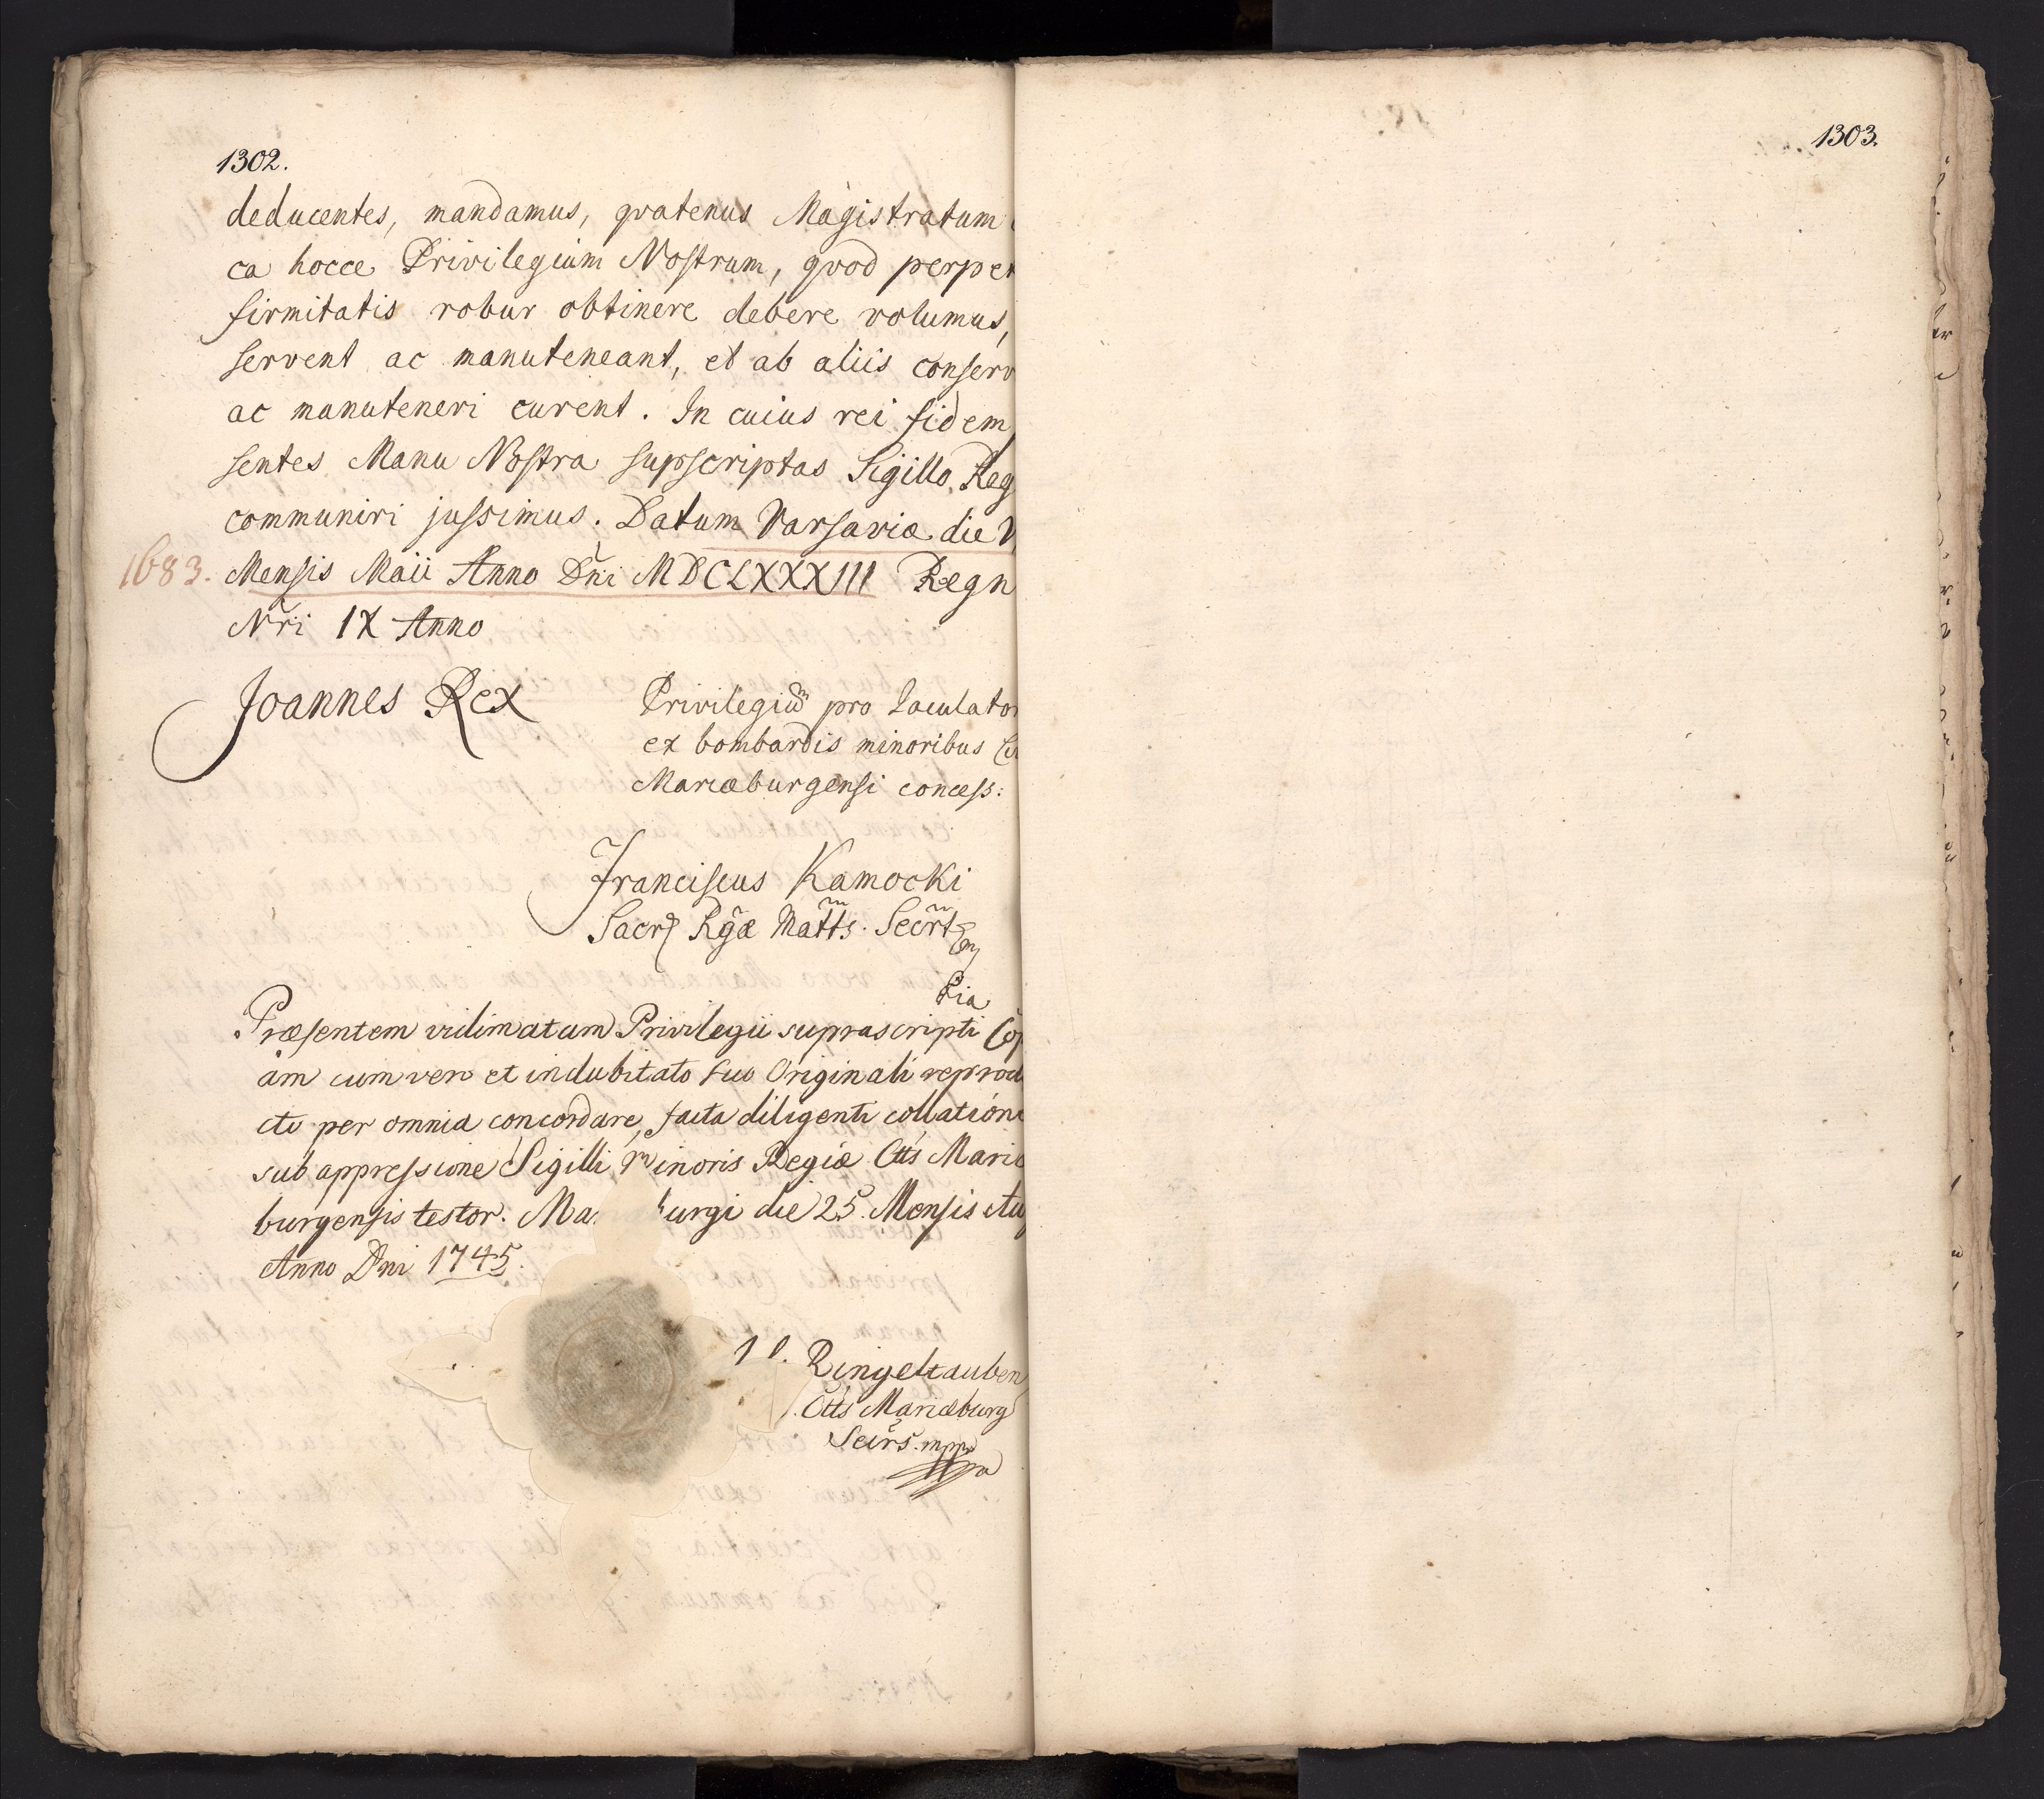 1302.
deducentes, mandamus, qvatenus Magistratum
ca hocce Privilegium Nostrum, qvod perpet
firmitatis robur obtinere debere volumus,
servent ac manuteneant, et ab aliis conserv
ac manuteneri curent. In cuius rei fidem
sentes Manu Nostra supscriptas Sigillo Reg
communiri jussimus. Datum Varsaviæ die V
1683. Mensis Maii Anno Dni MDCLXXXIII Regn
Nri IX Anno
Joannes Rex
Privilegiu͞m pro Iaculator
ex bombardis minoribus
Mariæburgensi concess:
Franciscus Kamocki
Sacr Rgæ Matts. Secrt
Præsentem vidimatum Privilegii suprascripti Cop
pia
am cum vero et indubitato suo Originali reprod
cto per omnia concordare, facta diligenti collatione
sub appressione Sigilli Minoris Regiæ Ctts Mariæ
burgensis testor. Ma burgi die 25. Mensis Aug
Anno Dni 1745.
Ringeltauben
Ctts Mariæburg
Secrs. mppa
1303.